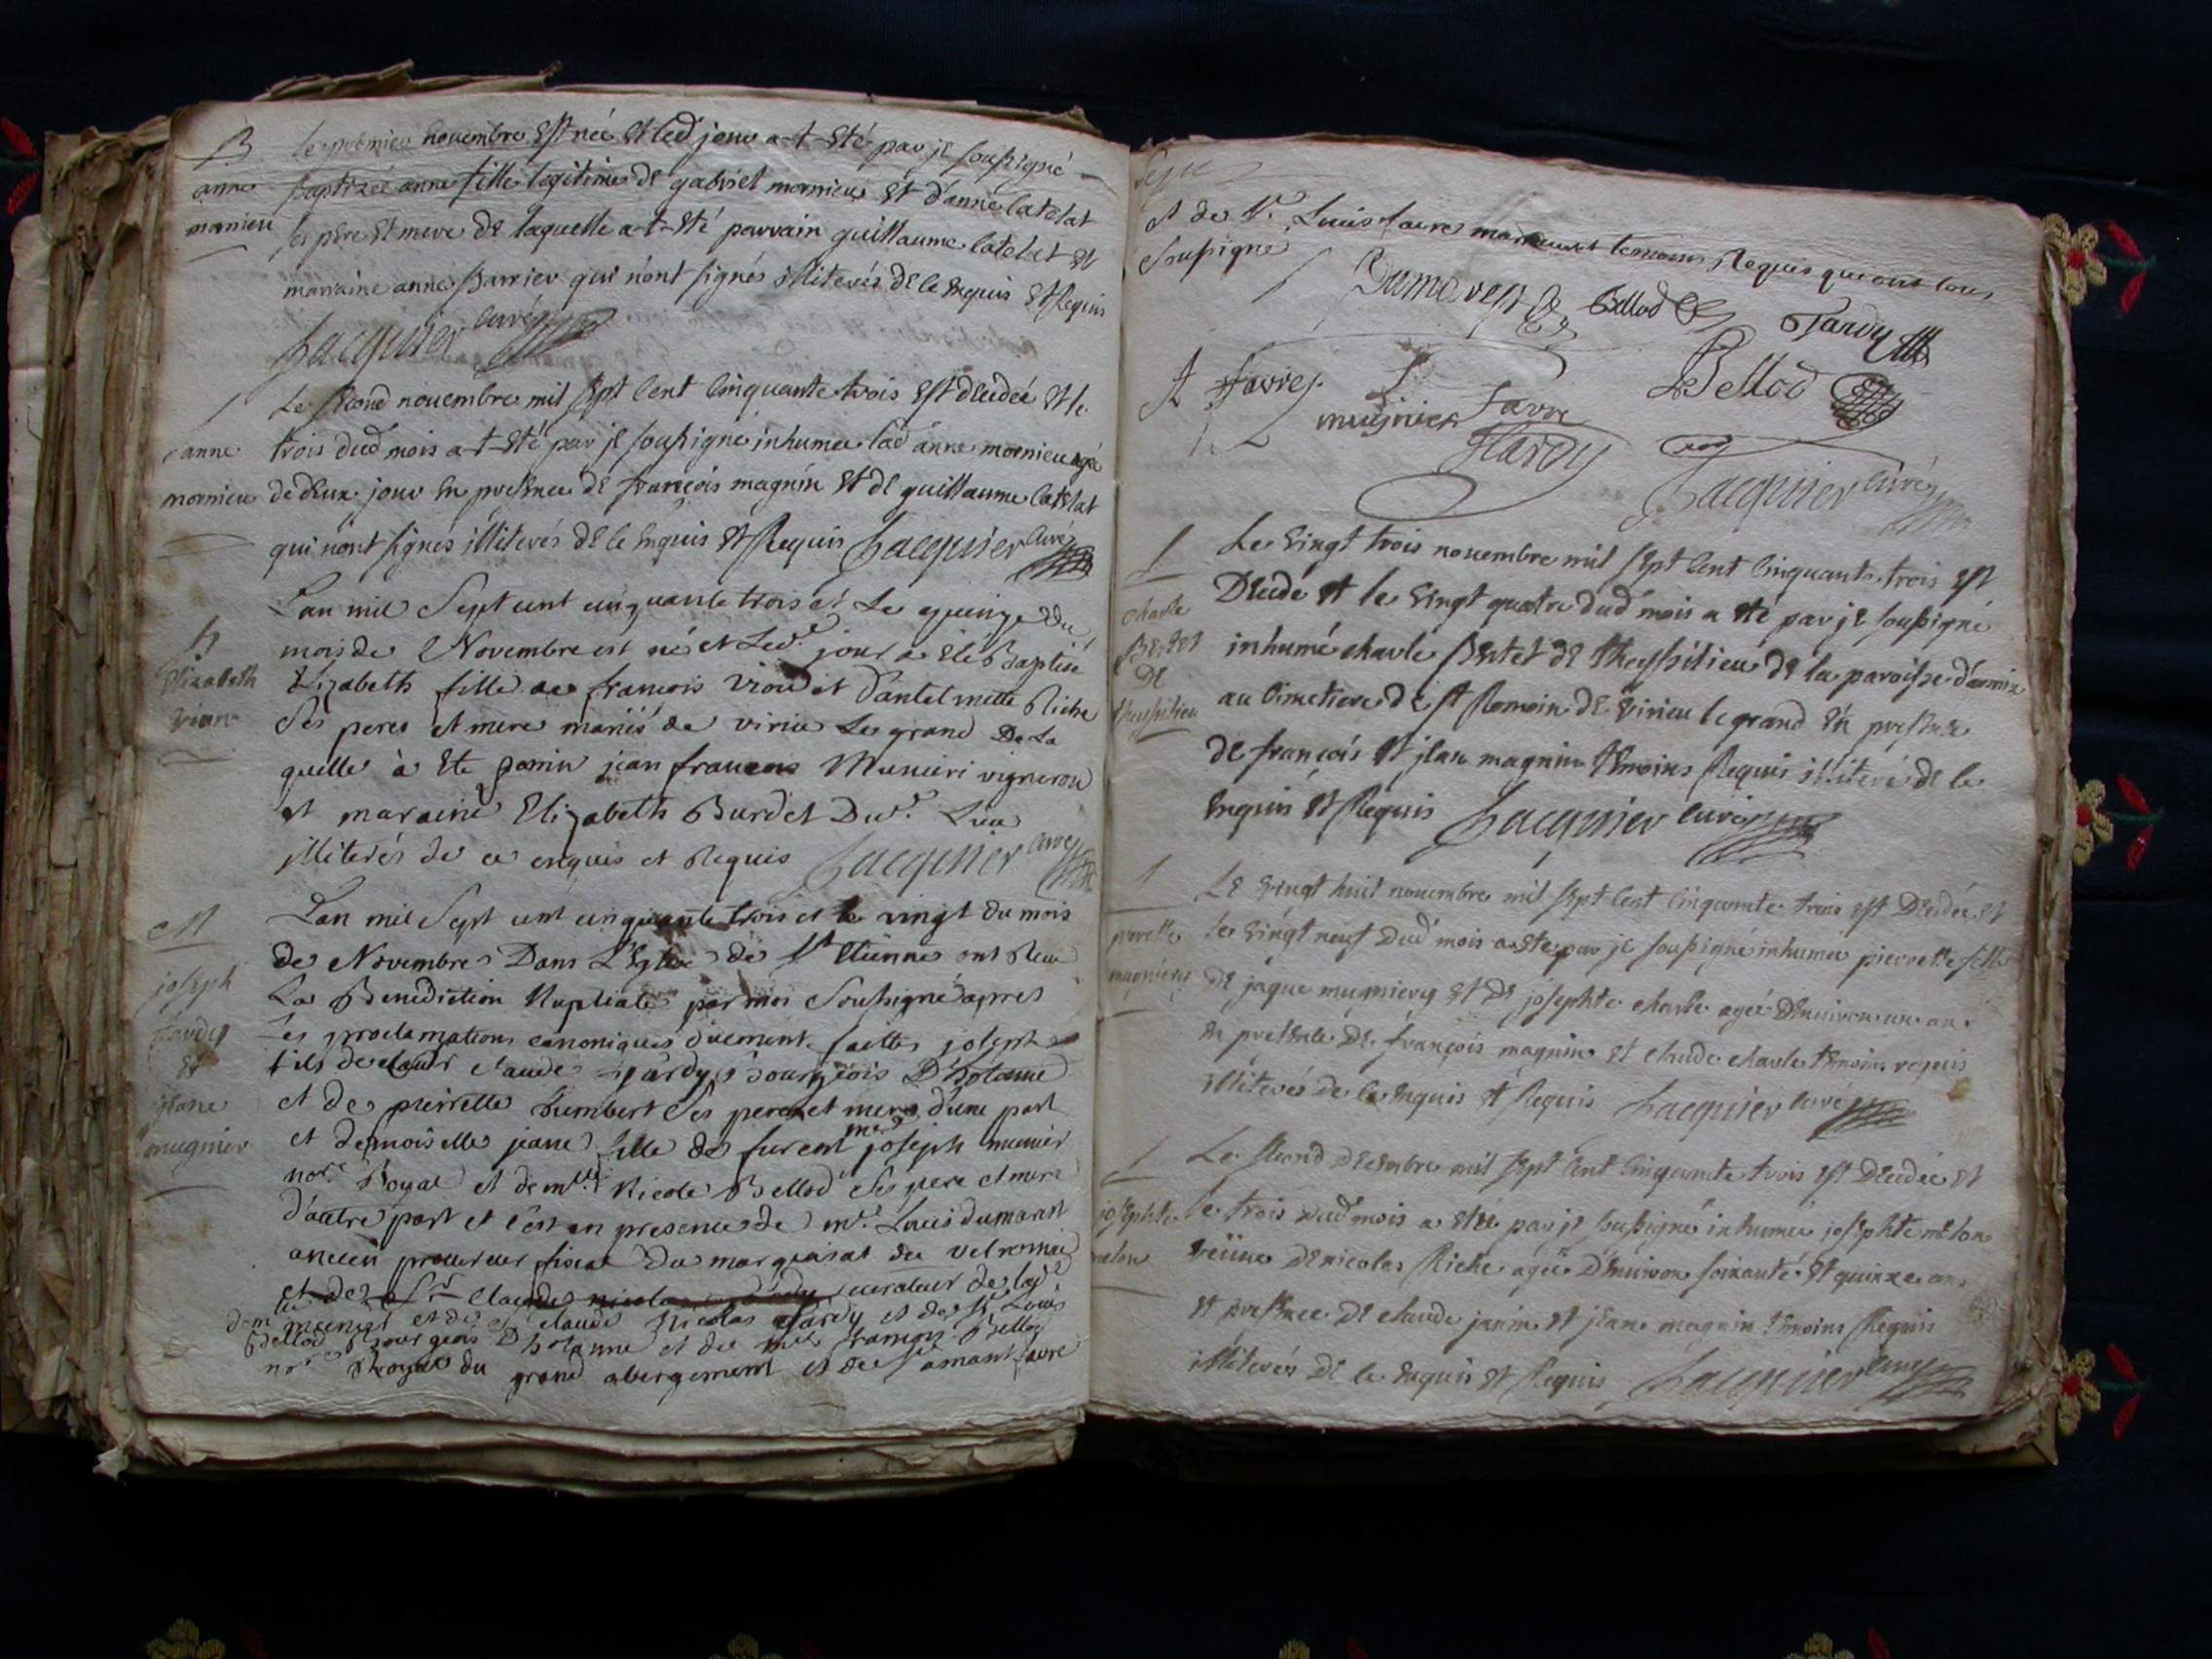 B
anne
mornieu
le premier novembre est née et led jour a-t-été par je soussigné
baptizée anne fille legitime de gabriel mornieu et d'anne latelat
ses père et mere de laquelle a-t-été parrain guillaume latelat et
marraine anne barrier qui n'ont signés illiterés de ce enquis et Requis
Jacquier curé
anne
mornieu
Le second novembre mil sept cent cinquante trois est decedée et le
trois dud mois a-t-été par je soussigné inhumée lad anne mornieu agée
de deux jour en presence de françois magnin et de guillaume latelat
qui n'ont signés illiterés de ce enquis et Requis Jacquier curé
B
Elizabeth
Lan mil Sept cent cinquante trois et Le quinze du
mois de Novembre est né et Led. jour a été Baptisé
Elizabeth fille de francois et d'antelmette Riche
Ses peres et mere mariés de virieu Le grand De La
quelle à Ete parrin jean francois vigneron
et maraine Elizabeth Burdet Dud. Lieu
illiterés de ce enquis et Requis Jacquier curé
M
joseph
tardy
et
jeane
mugnier
Lan mil Sept cent cinquante trois et le vingt du mois
de Novembre Dans L'Eglise de St Etienne ont Receu
La Benediction Nuptiale par moi Soussigné apres
Les proclamations canoniques duement faittes joseph
fils de claude tardy bourgeois D'hotonne
et de pierrette humbert Ses peres et mere d'une part
et demoiselle jeane fille de furent me joseph munier
nore Royal et de mlle Nicole Bellod Ses pere et mere
d'autre part et c'est en presence de mre Louis dumarest
ancien procureur fiscal du marquisat du velromai
et de Sr claude nicolas tardy curateur de lade
demlle munier et de Sr claude Nicolas tardy et de Sr Louis
Bellod Bourgeois D'hotonne et de mre francois Bellod
nore Royal du grand abergement et de Sr amant favre
et de Sr Louis favre temoins Requis qui ont tous
Soussigné
Dumarest Bellod Tardy
A favre mugnier favre Bellod
Tardy
Jacquier curé
charle
Bertet
De
thespilieu
Le vingt trois novembre mil sept cent cinquante trois est
Decedé et le vingt quatre dud mois a été par je soussigné
inhumé charle Bertet de thespilieu de la paroisse d'armix
au cimetiere de st Romain de virieu le grand en presence
de françois et jean magnin temoins Requis illiteré de ce
enquis et Requis Jacquier curé
pierrette
mugniery
Le vingt huit novembre mil sept cent cinquante trois est Decedée et
le vingt neuf dud mois a été par je soussigné inhumée pierrette fille
de jaque mugniery et de josephte charle agée d'environ un an
en presence de françois magnin et claude charle temoins requis
illiterés de ce enquis et Requis Jacquier curé
josephte
melon
Le second decembre mil sept cent cinquante trois est Decedée et
le trois dud mois a étée par je soussigné inhumée josephte melon
veüue de nicolas Riche agée d'environ soixante et quinze ans
et presence de claude janin et jeane magnin temoins Requis
illiterés de ce enquis et Requis Jacquier curé